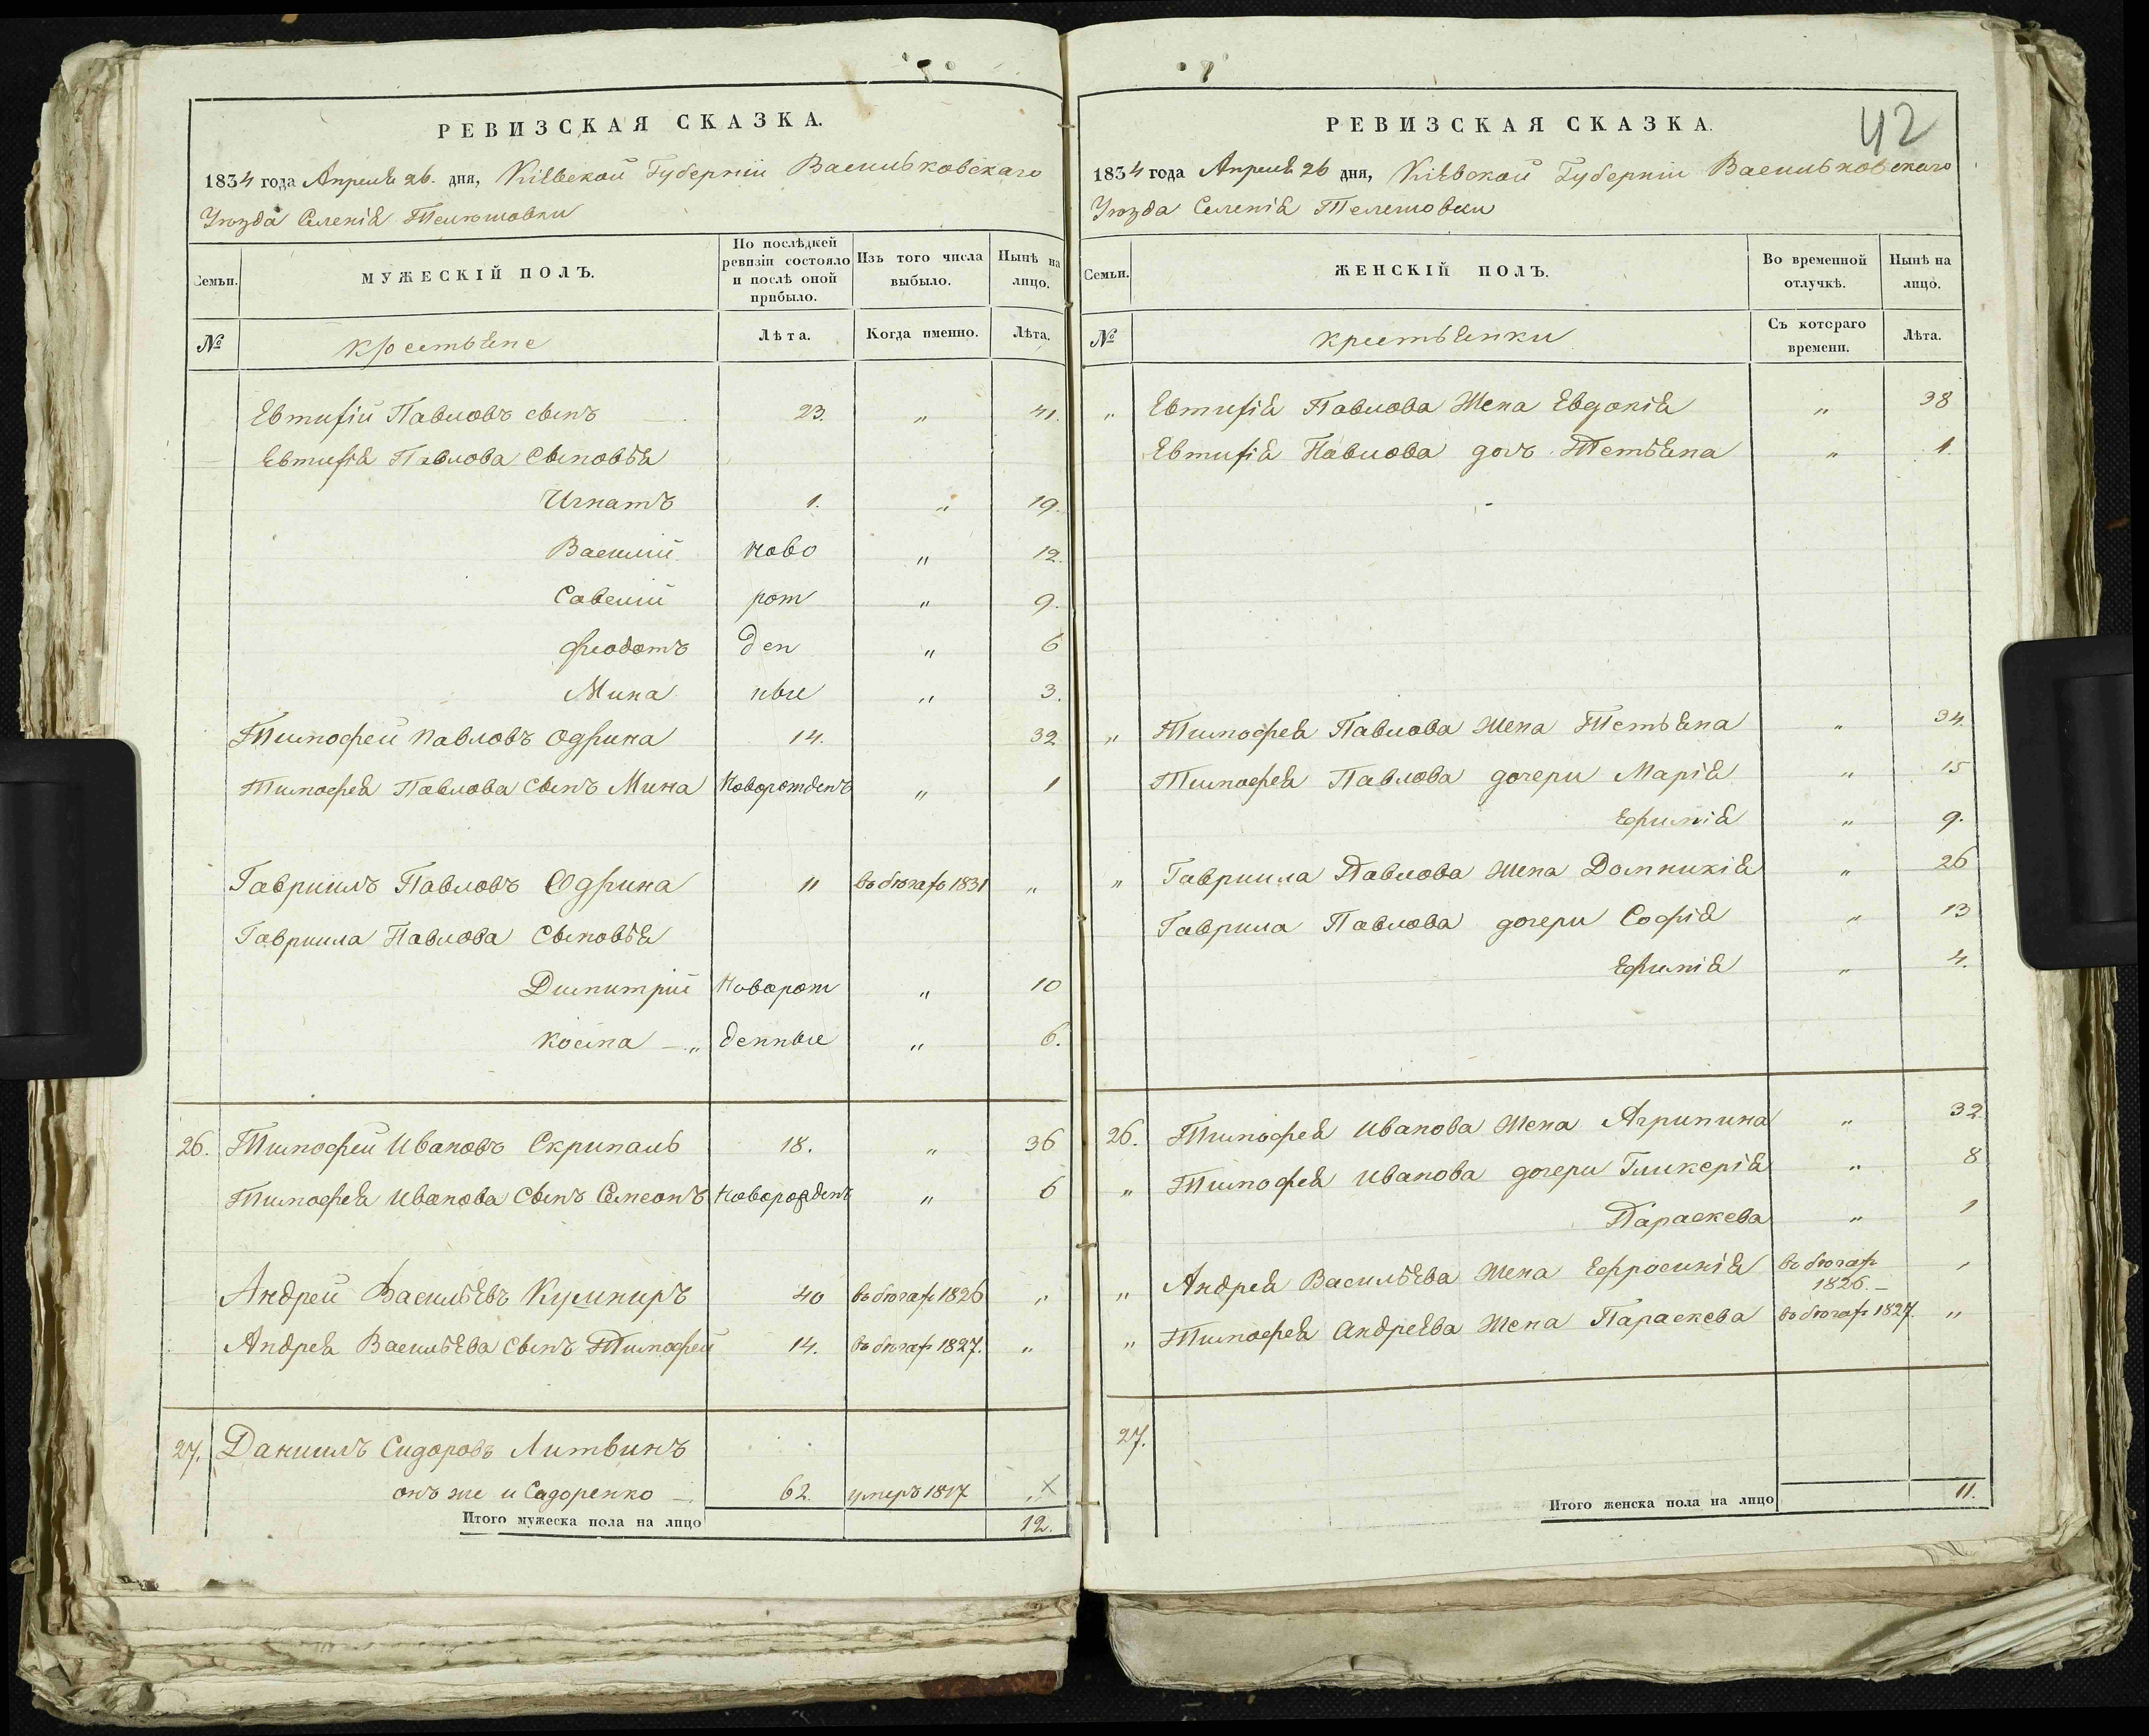 РЕВИЗСКАЯ СКАЗКА.
1834 года Апреля 26. дня, Кіевской Губерніи Васильковскаго
Уюзда Селенія Телюшовки
Семьи.
МУЖЕСКІЙ ПОЛЪ.
По послѣдней ревизіи состояло и послѣ оной прибыло.
Изъ того числа выбыло.
Нынѣ на лицо.
№
крестьяне
Лѣта.
Когда именно.
Лѣта.
Евтифій Павловъ сынъ 23. „ 41.
Евтифія Павлова Сыновья
Игнатъ 1. „ 19.
Василий ново „ 12.
Савелий рот „ 9.
Феодотъ ден „ 6
Мина ные „ 3.
Тимофей Павловъ Одрина 14. 32
Тимофея Павлова Сынъ Мина Новоротденъ „ 1
Гавриилъ Павловъ Одрина 11 въ бюгаф 1831 „
Гавриила Павлова Сыновья
Димитрий Новорот „ 10
Косма „ денные „ 6.
26. Тимофей Ивановъ Скрипаль 18. „ 36
Тимофея Иванова Сынъ Симеонъ Новорожденъ „ 6
Андрей Васильевъ Кушниръ 40 въ бюгаф 1826 „
Андрея Васильева Сынъ Тимофей 14. въ бюгаф 1827. „
27. Даниилъ Сидоровъ Литвинъ
онъ же и Садоренко 62. умеръ 1817 „
Итого мужеска пола на лицо 12.
42
РЕВИЗСКАЯ СКАЗКА.
1834 года Апреля 26 дня, Кіевской Губерніи Васильковскаго
Уюзда Селенія Телешовки
Семьи.
ЖЕНСКІЙ ПОЛЪ.
Во временной отлучкѣ.
Нынѣ на лицо.
№
крестьянки
Съ котораго времени.
Лѣта.
„ Евтифія Павлова Жена Евдокія „ 38
Евтифія Павлова дочь Тетьяна „ 1.
„ Тимофея Павлова Жена Тетьяна „ 34.
Тимофея Павлова дочери Марія „ 15
Ефимія „ 9.
„ Гавриила Павлова Жена Домникія „ 26
Гаврила Павлова дочери Софія „ 13
Ефимія „ 4.
26. Тимофея Иванова Жена Агрипина „ 32
„ Тимофея Иванова дочери Гликерія „ 8
Параскева „ 1
„ Андрея Васильева Жена Ефросинія въ бюгаф 1826.
„ Тимофея Андреева Жена Параскева въ бюгаф 1827. „
27.
Итого женска пола на лицо 11.